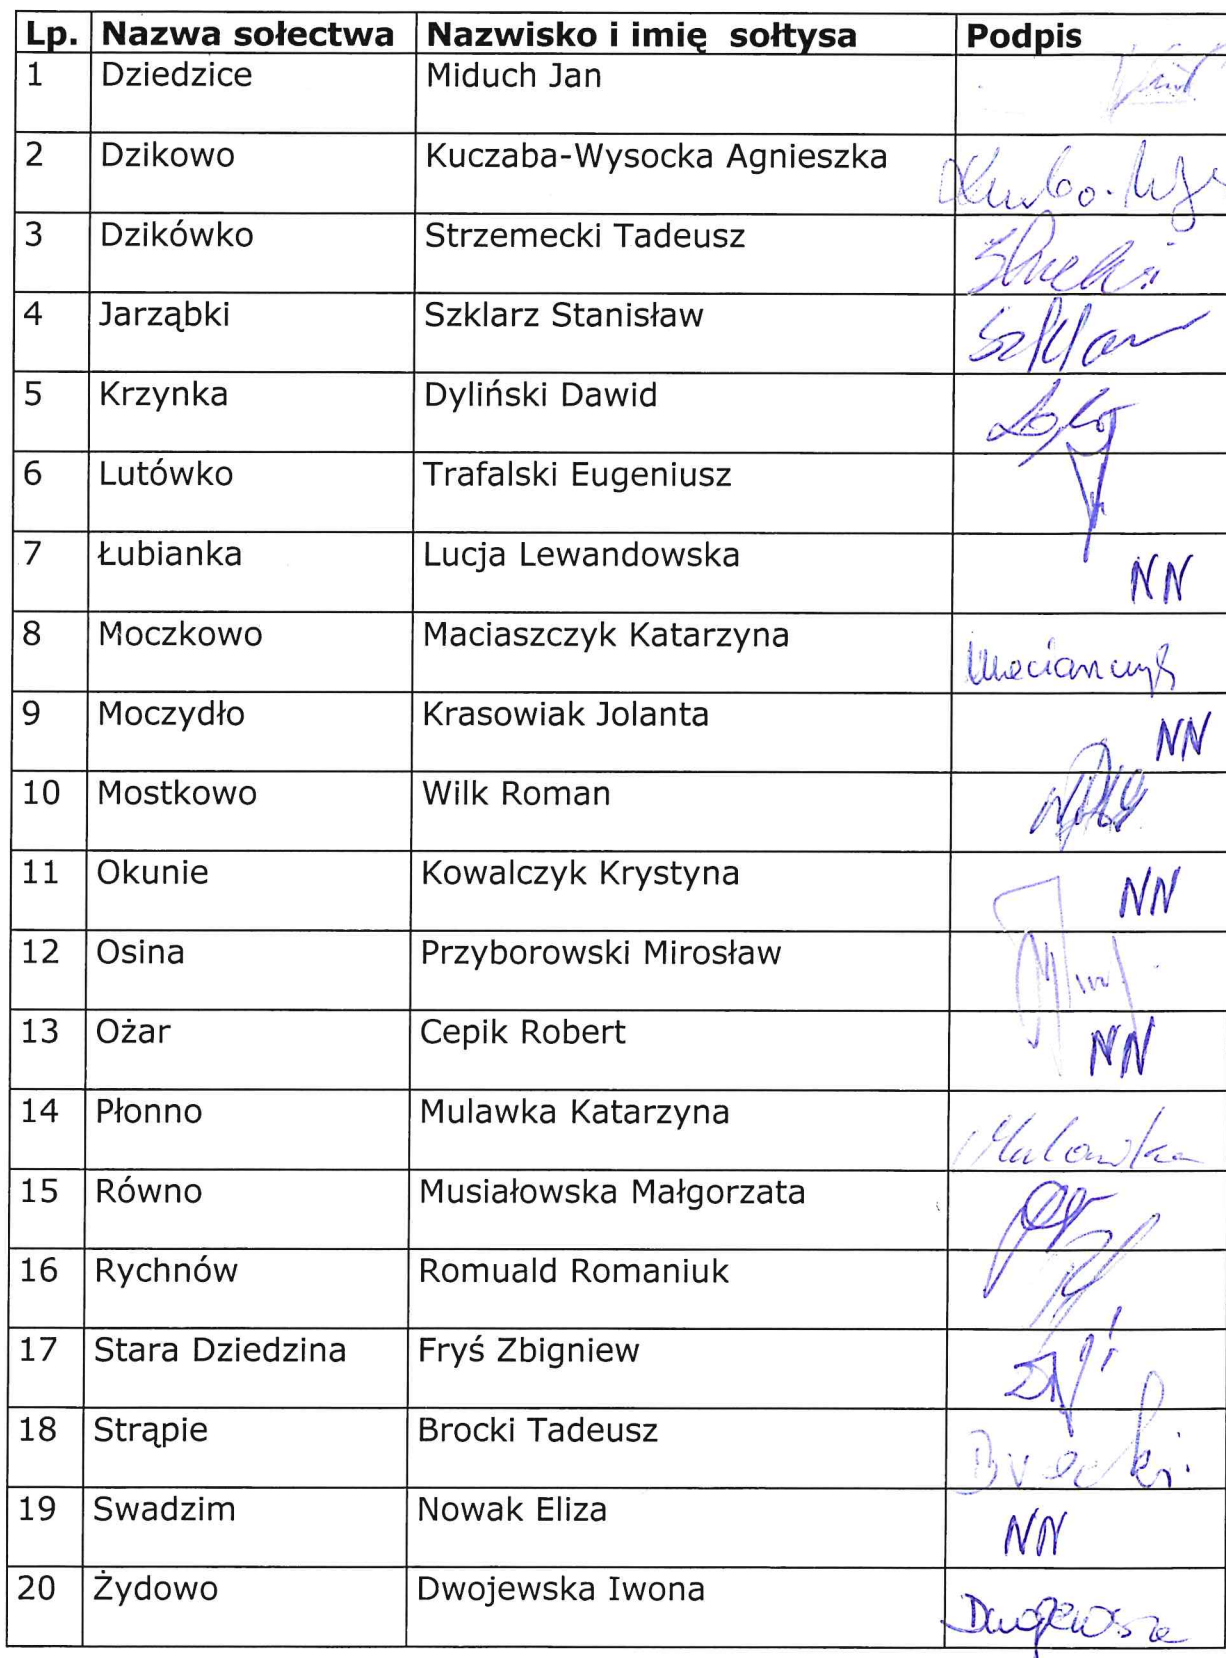 Lp. Nazwa sołectwa Nazwisko i imię sołtysa Podpis
1 Dziedzice Miduch Jan
2 Dzikowo Kuczaba-Wysocka Agnieszka
3 Dzikówko Strzemecki Tadeusz
4 Jarząbki Szklarz Stanisław Szklarz
5 Krzynka Dyliński Dawid
6 Lutówko Trafalski Eugeniusz
7 Łubianka Lucja Lewandowska NN
8 Moczkowo Maciaszczyk Katarzyna
9 Moczydło Krasowiak Jolanta NN
10 Mostkowo Wilk Roman
11 Okunie Kowalczyk Krystyna NN
12 Osina Przyborowski Mirosław
13 Ożar Cepik Robert NN
14 Płonno Mulawka Katarzyna Mulawka
15 Równo Musiałowska Małgorzata
16 Rychnów Romuald Romaniuk
17 Stara Dziedzina Fryś Zbigniew
18 Strąpie Brocki Tadeusz Brocki
19 Swadzim Nowak Eliza NN
20 Żydowo Dwojewska Iwona